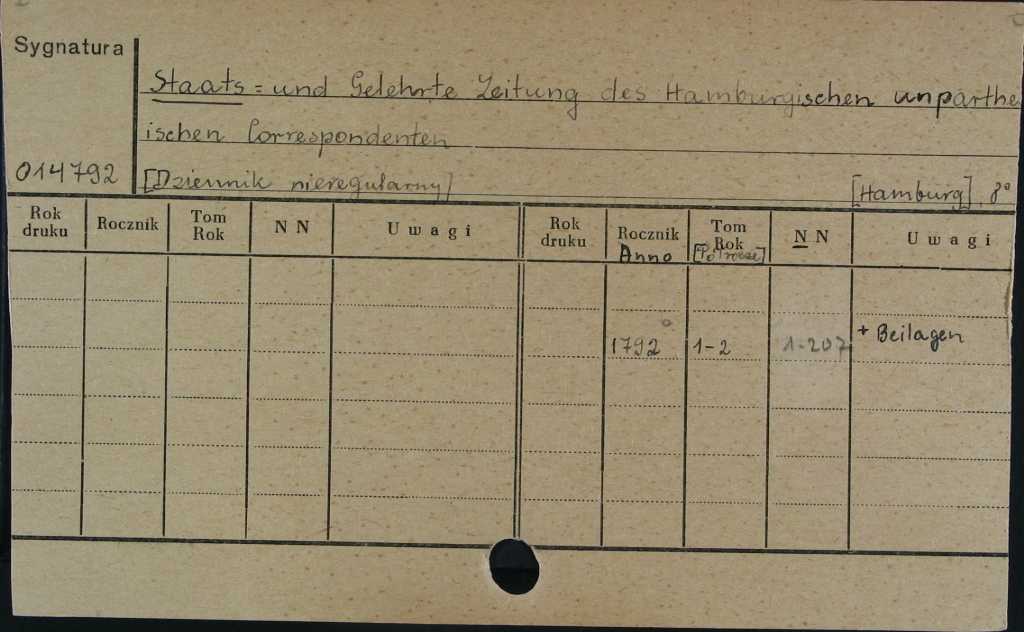 Sygnatura
Staats = und Gelehrte Zeitung des Hamburgischen unparthe
ischen Correspondenten
014792
[Dziennik nieregularny] [Hamburg] 8°
Rok druku Rocznik Tom Rok N N Uwagi Rok druku Rocznik Anno Tom Rok [Półrocze] N N Uwagi
1792 1-2 1-207 + Beilagen